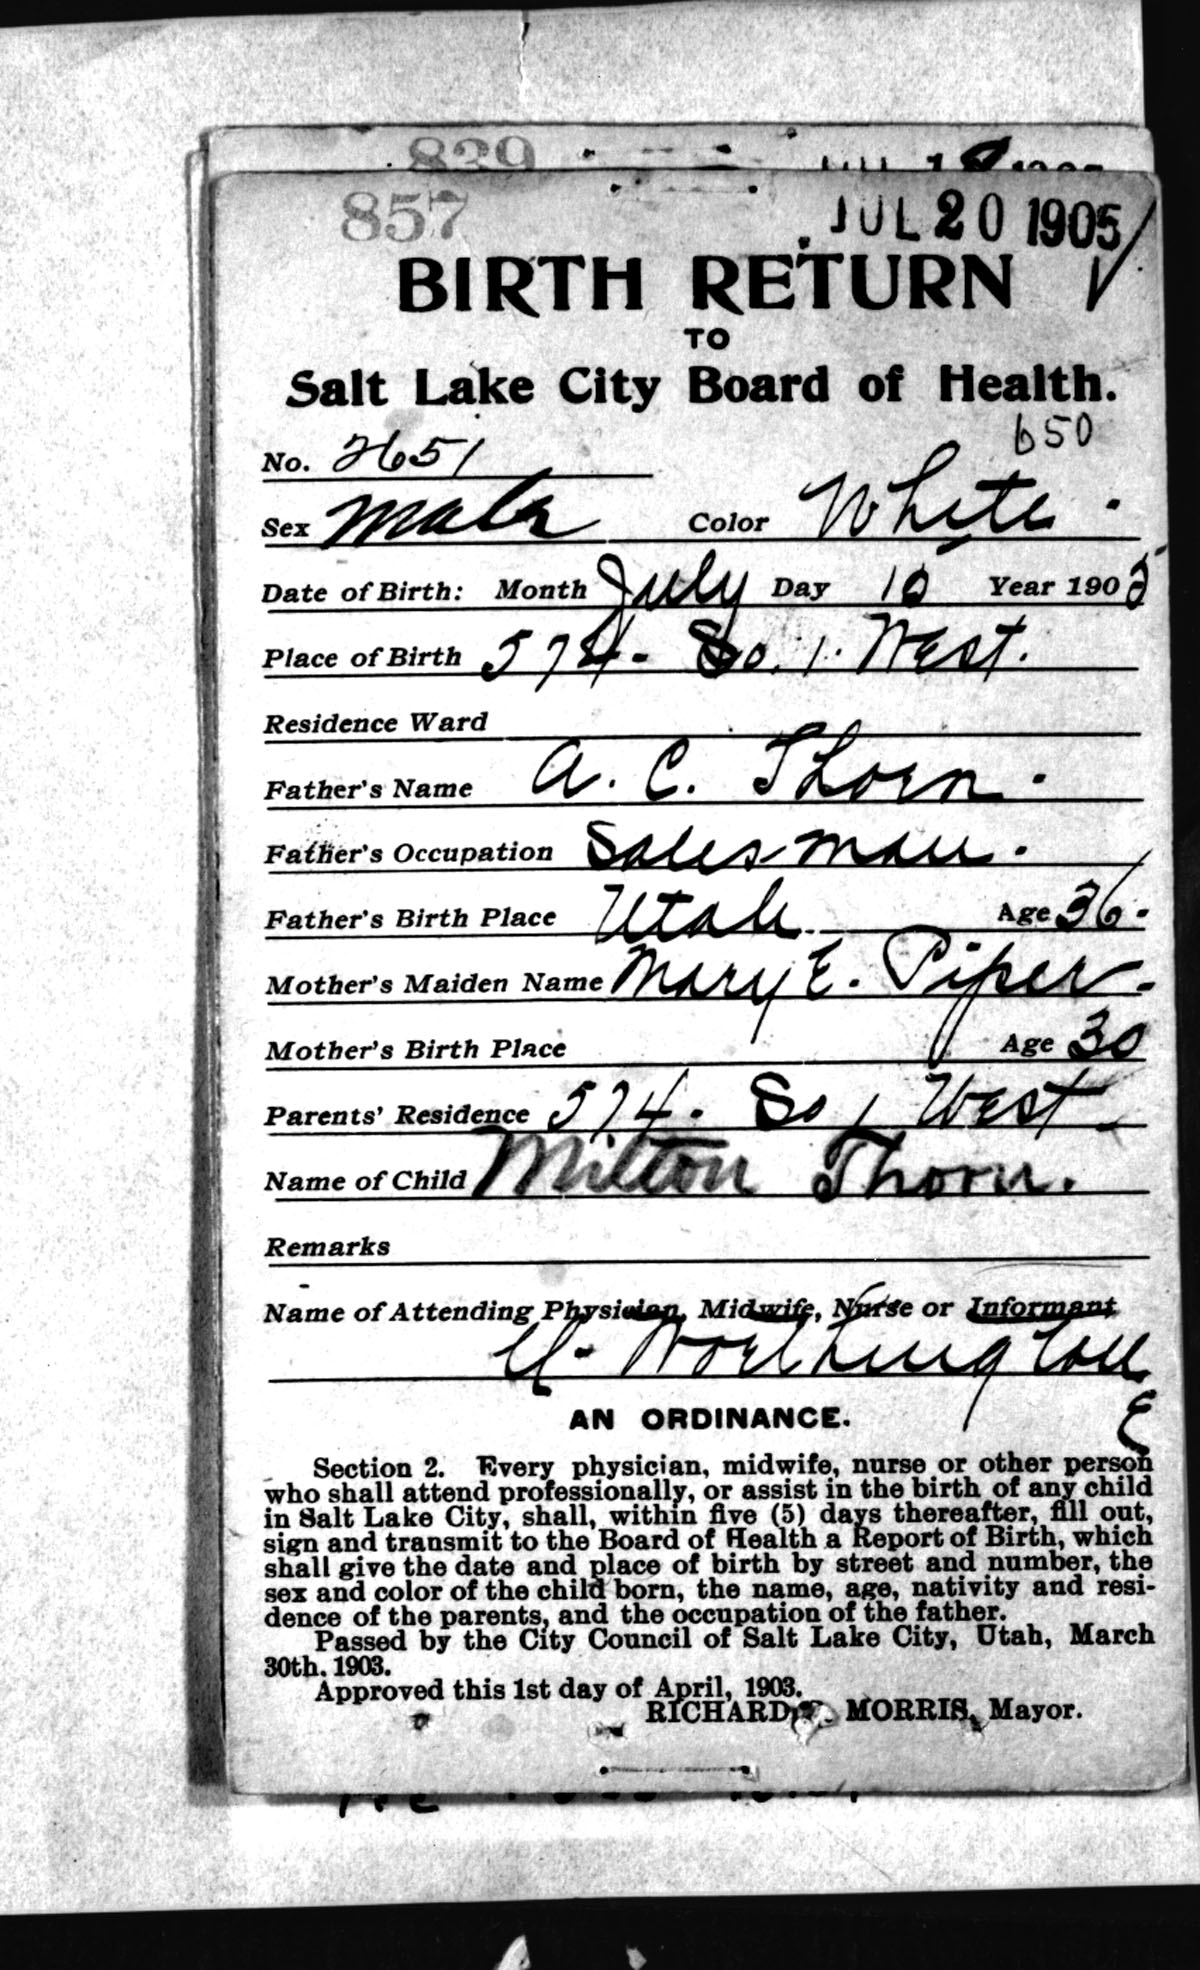 839
857 JUL 20 1905
BIRTH RETURN
TO
Salt Lake City Board of Health.
650
No. 2651
Sex Male Color White.
Date of Birth: Month July Day 15 Year 1905
Place of Birth 574 - So. 1. West.
Residence Ward
Father's Name A. C. Thorn.
Father's Occupation Salesman.
Father's Birth Place Utah Age 36.
Mother's Maiden Name Mary E. Piper.
Mother's Birth Place Age 30
Parents' Residence 574. So 1 West
Name of Child Milton Thorn.
Remarks
Name of Attending Physician, Midwife, Nurse or Informant
Worthington
AN ORDINANCE.
Section 2. Every physician, midwife, nurse or other person
who shall attend professionally, or assist in the birth of any child
in Salt Lake City, shall, within five (5) days thereafter, fill out,
sign and transmit to the Board of Health a Report of Birth, which
shall give the date and place of birth by street and number, the
sex and color of the child born, the name, age, nativity and resi-
dence of the parents, and the occupation of the father.
Passed by the City Council of Salt Lake City, Utah, March
30th, 1903.
Approved this 1st day of April, 1903.
RICHARD MORRIS, Mayor.